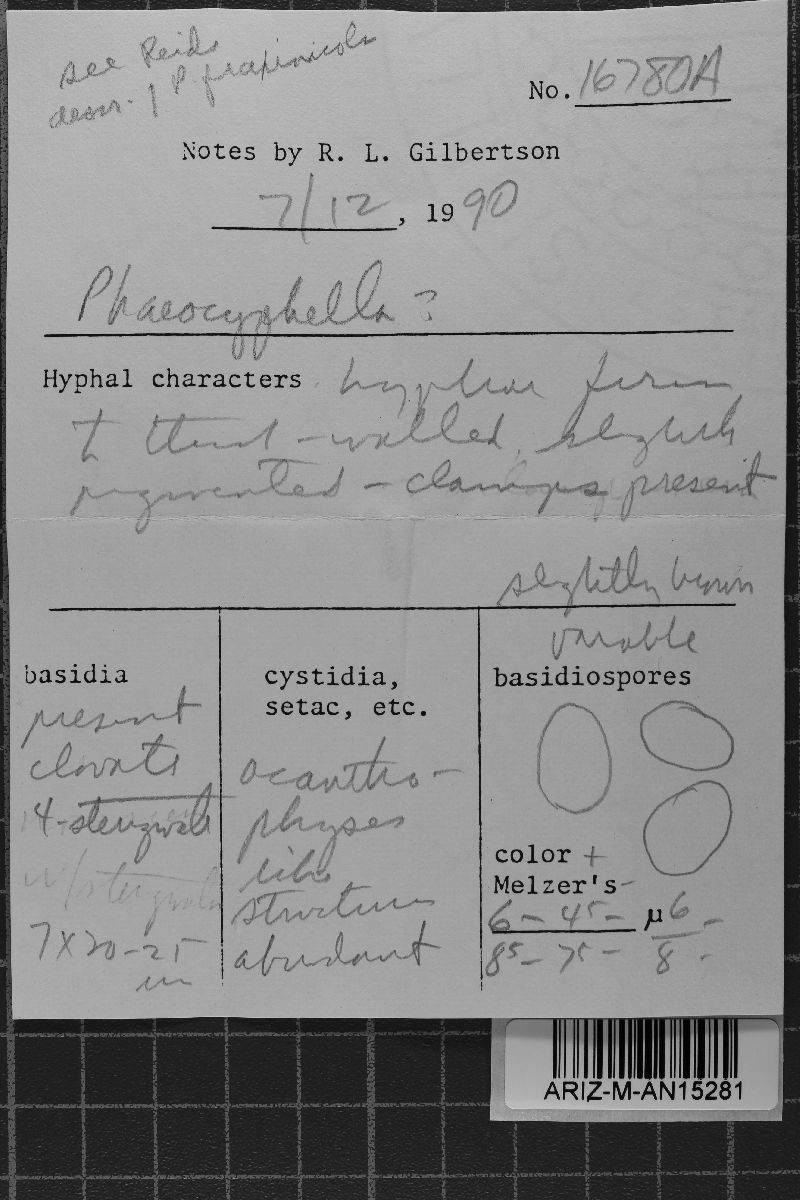 see Reids
descr. of P. fraxinicola
No. 16780A
Notes by R. L. Gilbertson
7/12, 1990
Phaeocyphella?
Hyphal characters hyphae firm
to thick-walled, slightly
pigmented - clamps present
slightly brown
variable
basidia
present
clavate
4-sterigmate
w/sterigmata
7 X 20-25
um
cystidia,
setac, etc.
acantho-
physes
like
structures
abundant
basidiospores
color +
Melzer's -
6 - 4⁵ - µ 6 -
8⁵ - 7⁵ - 8 -
ARIZ-M-AN15281